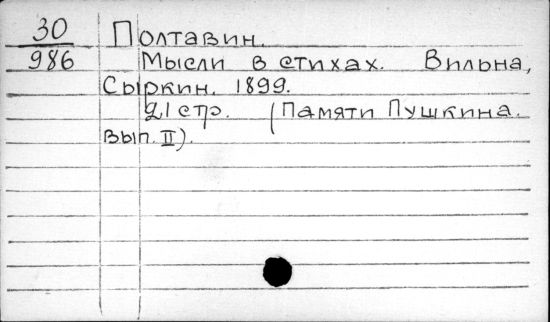 30 Полтавин.
986 Мысли в стихах. Вильна,
Сыркин. 1899.
21 стр. (Памяти Пушкина.
Вып. II).